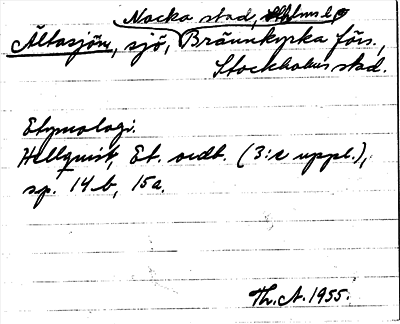 Nacka stad, Sthlms l.
Ältasjön, sjö, Brännkyrka förs,
Stockholms stad.
Etymologi.
Hellquist, Et. ordb. (3:e uppl.),
sp. 14 b, 15a.
Th. A. 1955.